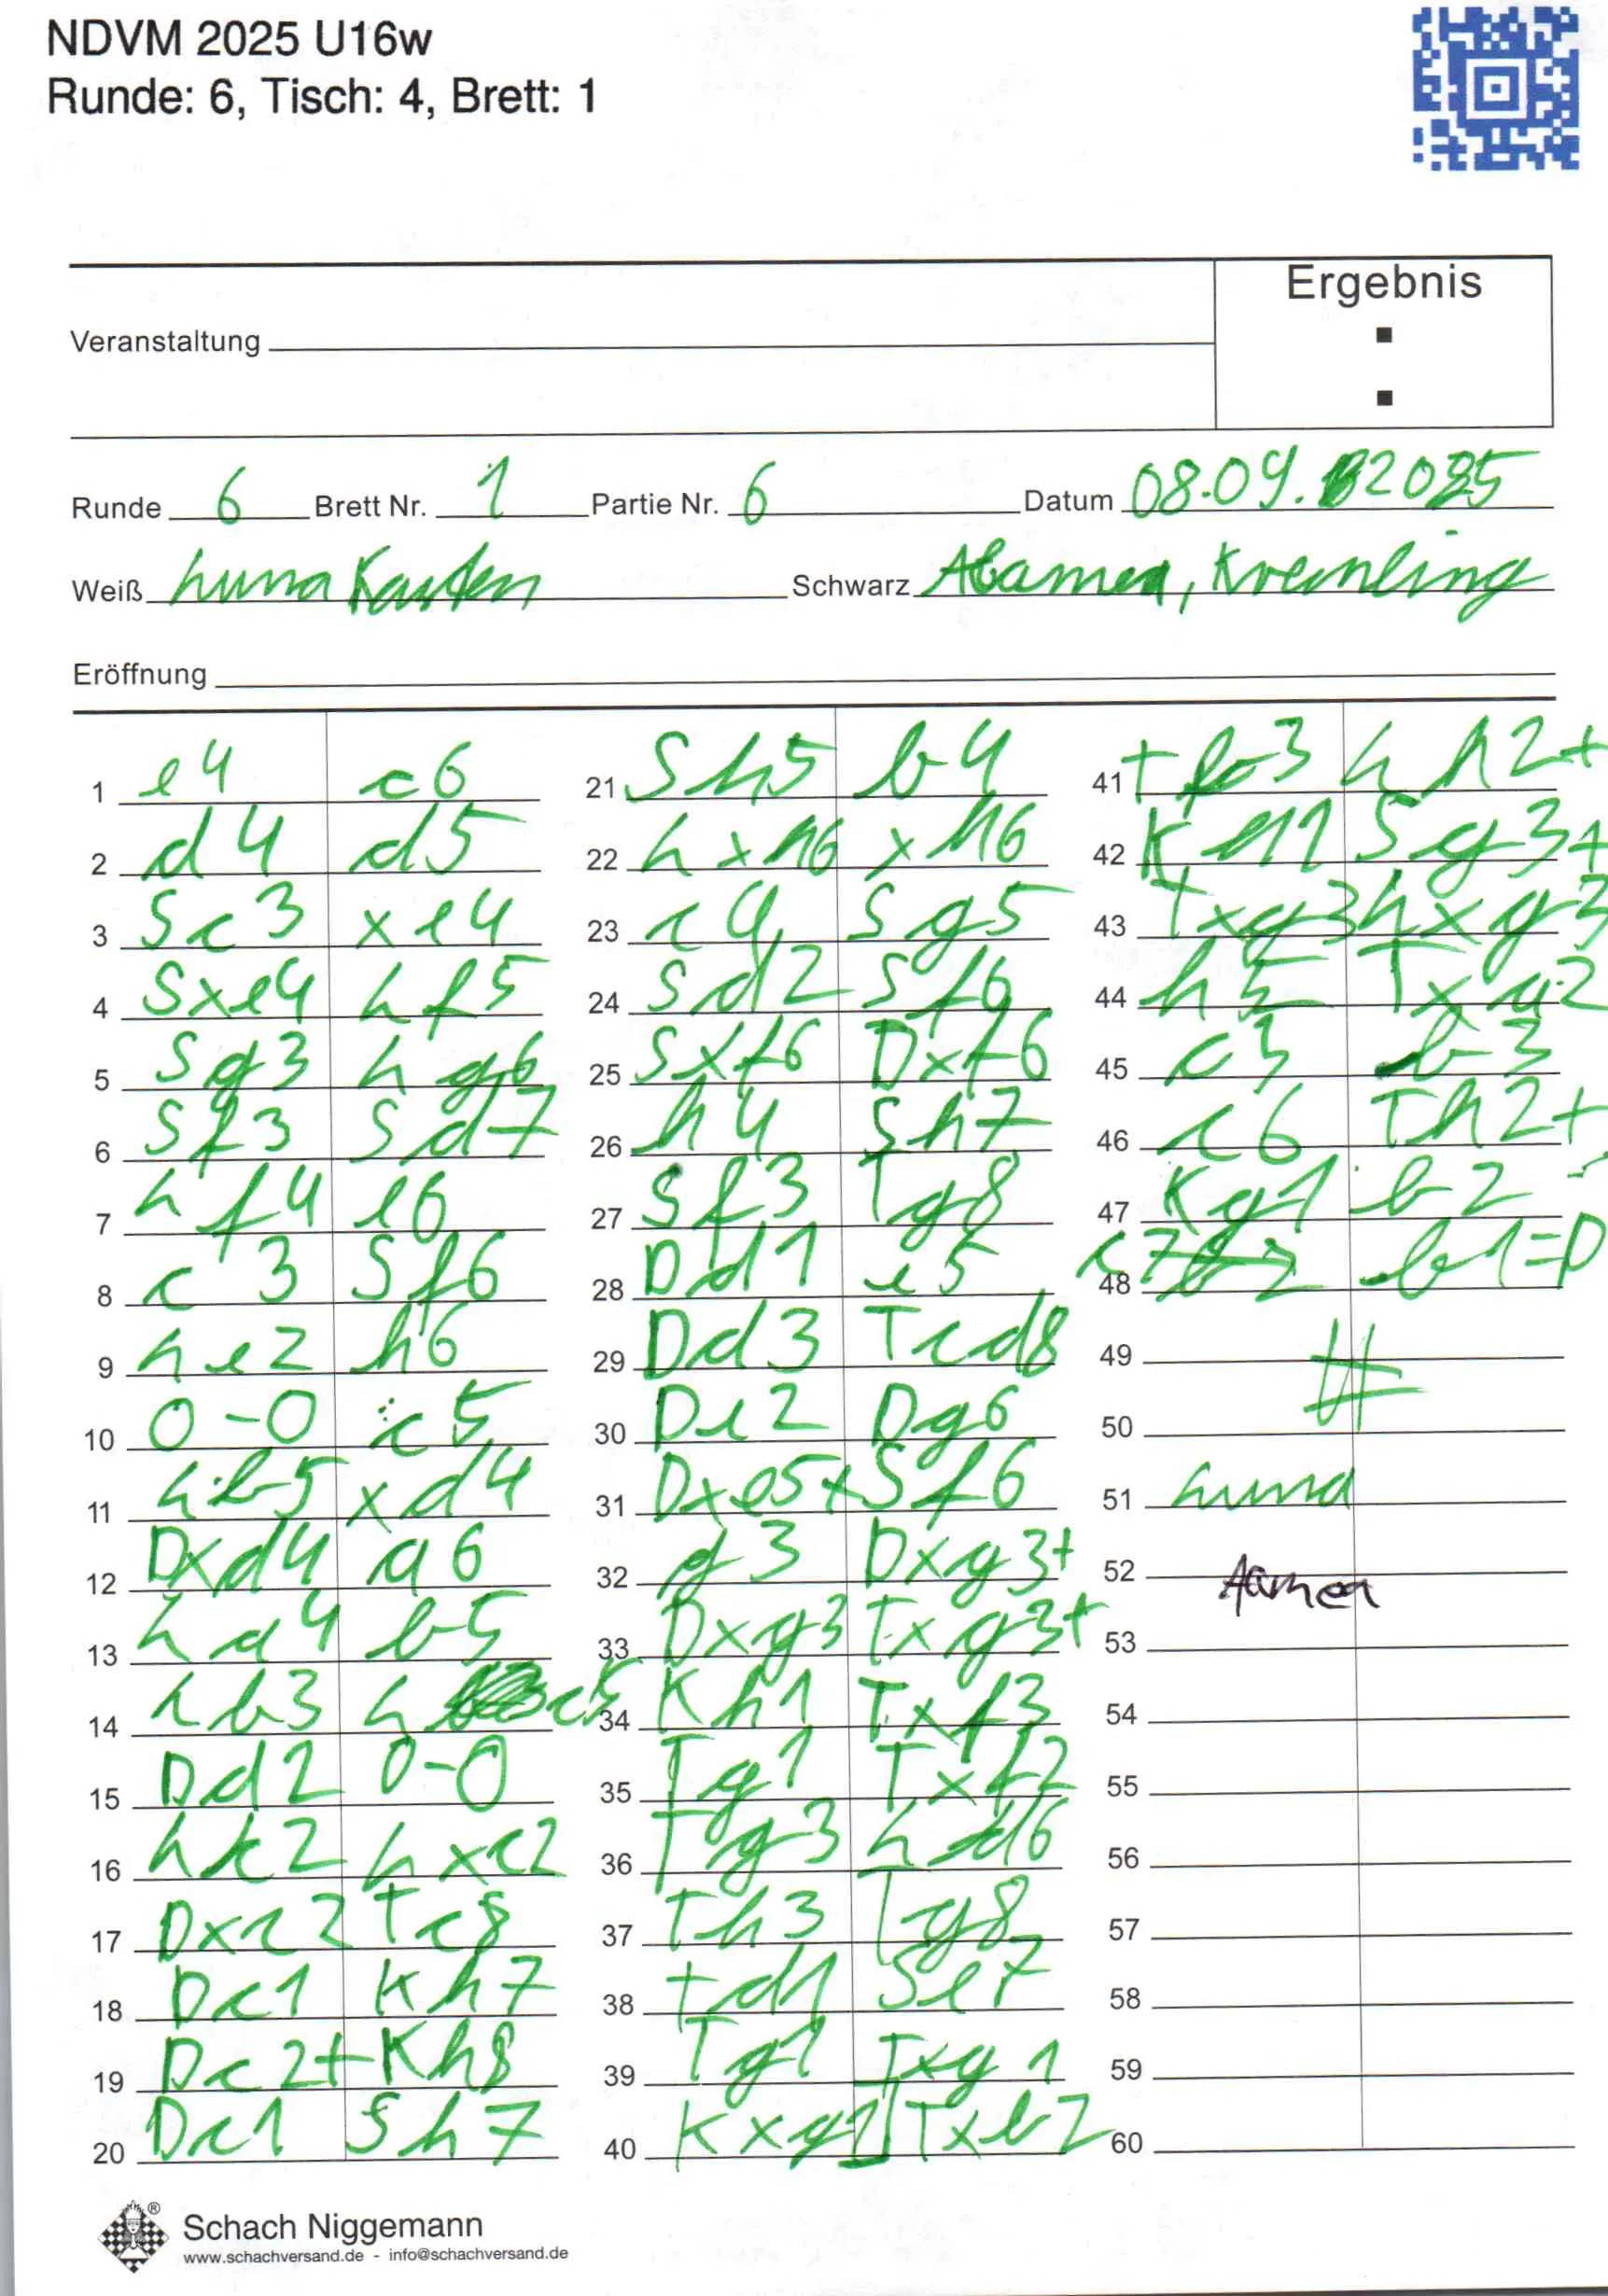 NDVM 2025 U16w
Runde: 6, Tisch: 4, Brett: 1
Ergebnis
Veranstaltung
Runde 6 Brett Nr. 1 Partie Nr. 6 Datum 08.09.2025
Weiß Luna Schwarz Kremling
Eröffnung
1 e4 c6
2 d4 d5
3 Sc3 xe4
4 Sxe4 Lf5
5 Sg3 Lg6
6 Sf3 Sd7
7 Lf4 e6
8 c3 Sf6
9 Le2 h6
10 0-0 c5
11 Lb5 xd4
12 Dxd4 a6
13 La4 b5
14 Lb3 Lc5
15 Dd2 0-0
16 Lc2 Lxc2
17 Dxc2 Tc8
18 Dc1 Kh7
19 Dc2+ Kh8
20 Dc1 Sh7
21 Sh5 b4
22 Lxh6 xh6
23 c4 Sg5
24 Sd2 Sf6
25 Sxf6 Dxf6
26 h4 Sh7
27 Sf3 Tg8
28 Dd1 e5
29 Dd3 Tcd8
30 De2 Dg6
31 Dxe5+ Sf6
32 g3 Dxg3+
33 Dxg3 Txg3+
34 Kh1 Txf3
35 Tg1 Txf2
36 Tg3 Ld6
37 Th3 Tg8
38 Td1 Se7
39 Tg1 Txg1
40 Kxg1 Txb2
41 Tb3 Lh2+
42 Kh1 Sg3+
43 Txg3 Lxg3
44 h5 Txa2
45 c5 b3
46 c6 Th2+
47 Kg1 b2
48 c7 b1=D
49 #
50
51 Luna
52 Aamea
53
54
55
56
57
58
59
60
Schach Niggemann
www.schachversand.de - info@schachversand.de